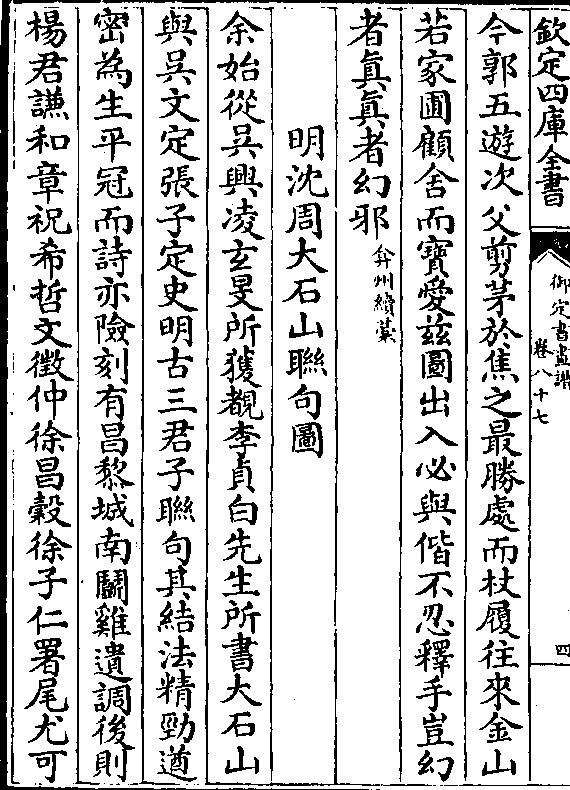 欽定四庫全書
御定書畫譜
卷八十七
四
今郭五遊次父剪茅於焦之最勝處而杖履往來金山
若家圃顧舍而寶愛兹圖出入必與偕不忍釋手豈幻
者眞眞者幻邪弇州續藁
明沈周大石山聯句圖
余始從吳興凌玄旻所獲覩李貞白先生所書大石山
與吳文定張子定史明古三君子聯句其結法精勁遒
密為生平冠而詩亦險刻有昌黎城南鬭雞遺調後則
楊君謙和章祝希哲文徵仲徐昌榖徐子仁署尾尤可